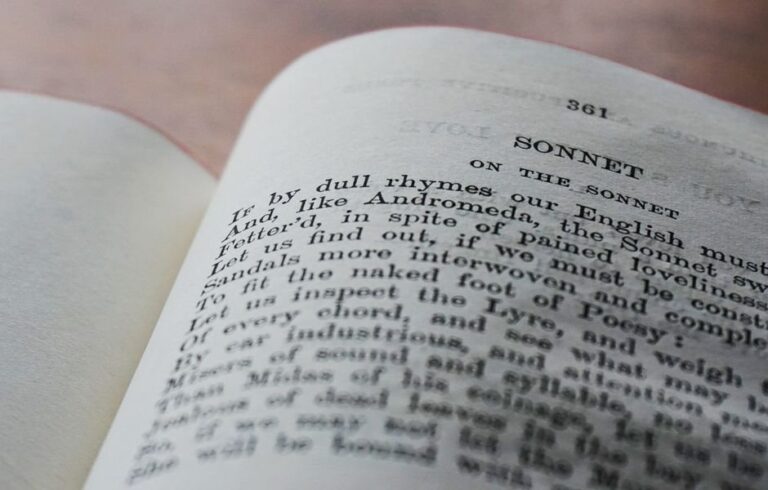 361
SONNET
ON THE SONNET
If by dull rhymes our English must
And, like Andromeda, the Sonnet sw
Fetter'd, in spite of pained loveliness
Let us find out, if we must be constr
Sandals more interwoven and comple
To fit the naked foot of Poesy:
Let us inspect the Lyre, and weigh
Of every chord, and see what may b
By ear industrious, and attention me
Misers of sound and syllable, no less
Than Midas of his coinage, let us be
Jealous of dead leaves in the bay
So, if we may not let the Mu
She will be bound with